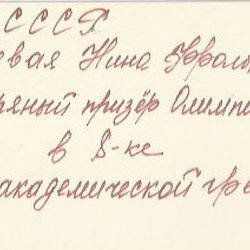 СССР
евая Нина Фрол
ряный призёр Олимпи
в 8-ке
академической гре